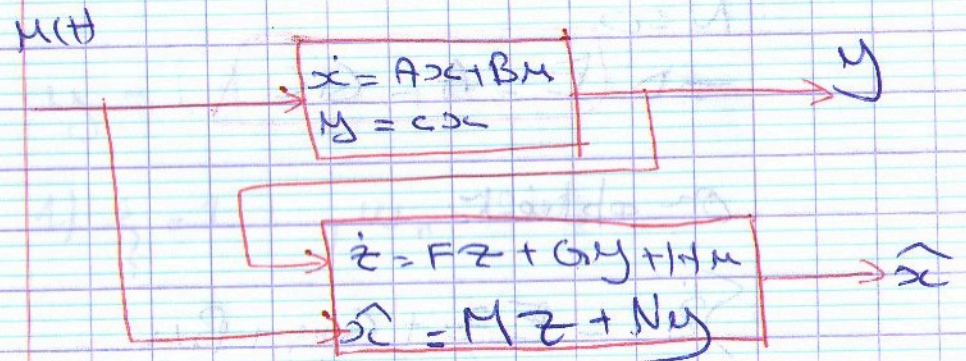 u(t)
ẋ = Ax + Bu
y = cx
y
ż = Fz + Gy + Hu
x̂ = Mz + Ny
x̂